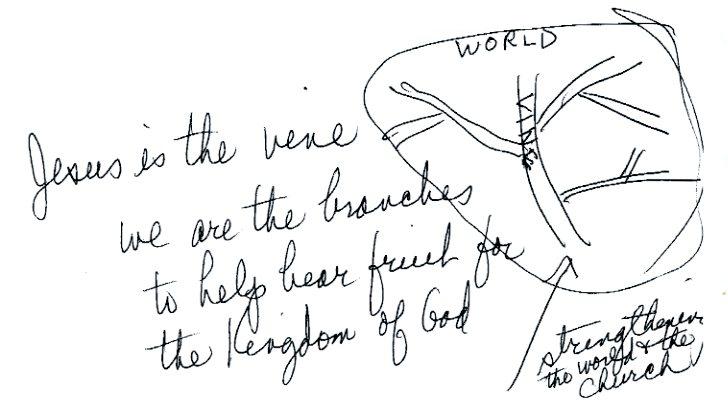 WORLD
VINE
Jesus is the vine
we are the branches
to help bear fruit for
the Kingdom of God
strengthening
the world & the
church